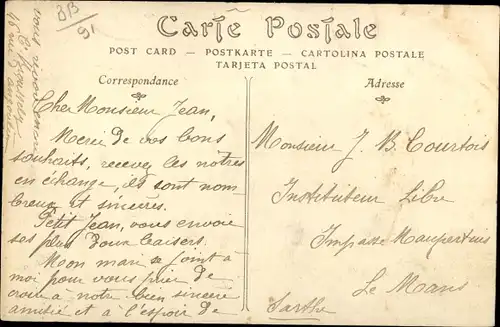 BB
91
Carte Postale
POST CARD — POSTKARTE — CARTOLINA POSTALE
TARJETA POSTAL
Correspondance
Adresse
Cher Monsieur Jean,
Merci de vos bons
souhaits, recevez les nôtres
en échange, ils sont nom-
breux et sincères.
Petit Jean, vous envoie
ses plus doux baisers.
Mon mari se joint à
moi pour vous prier de
croire a notre bien sincère
amitié et à l'espoir de
vous
Monsieur J. B. Courtois
Instituteur Libre
Impasse Maupertuis
Le Mans
Sarthe